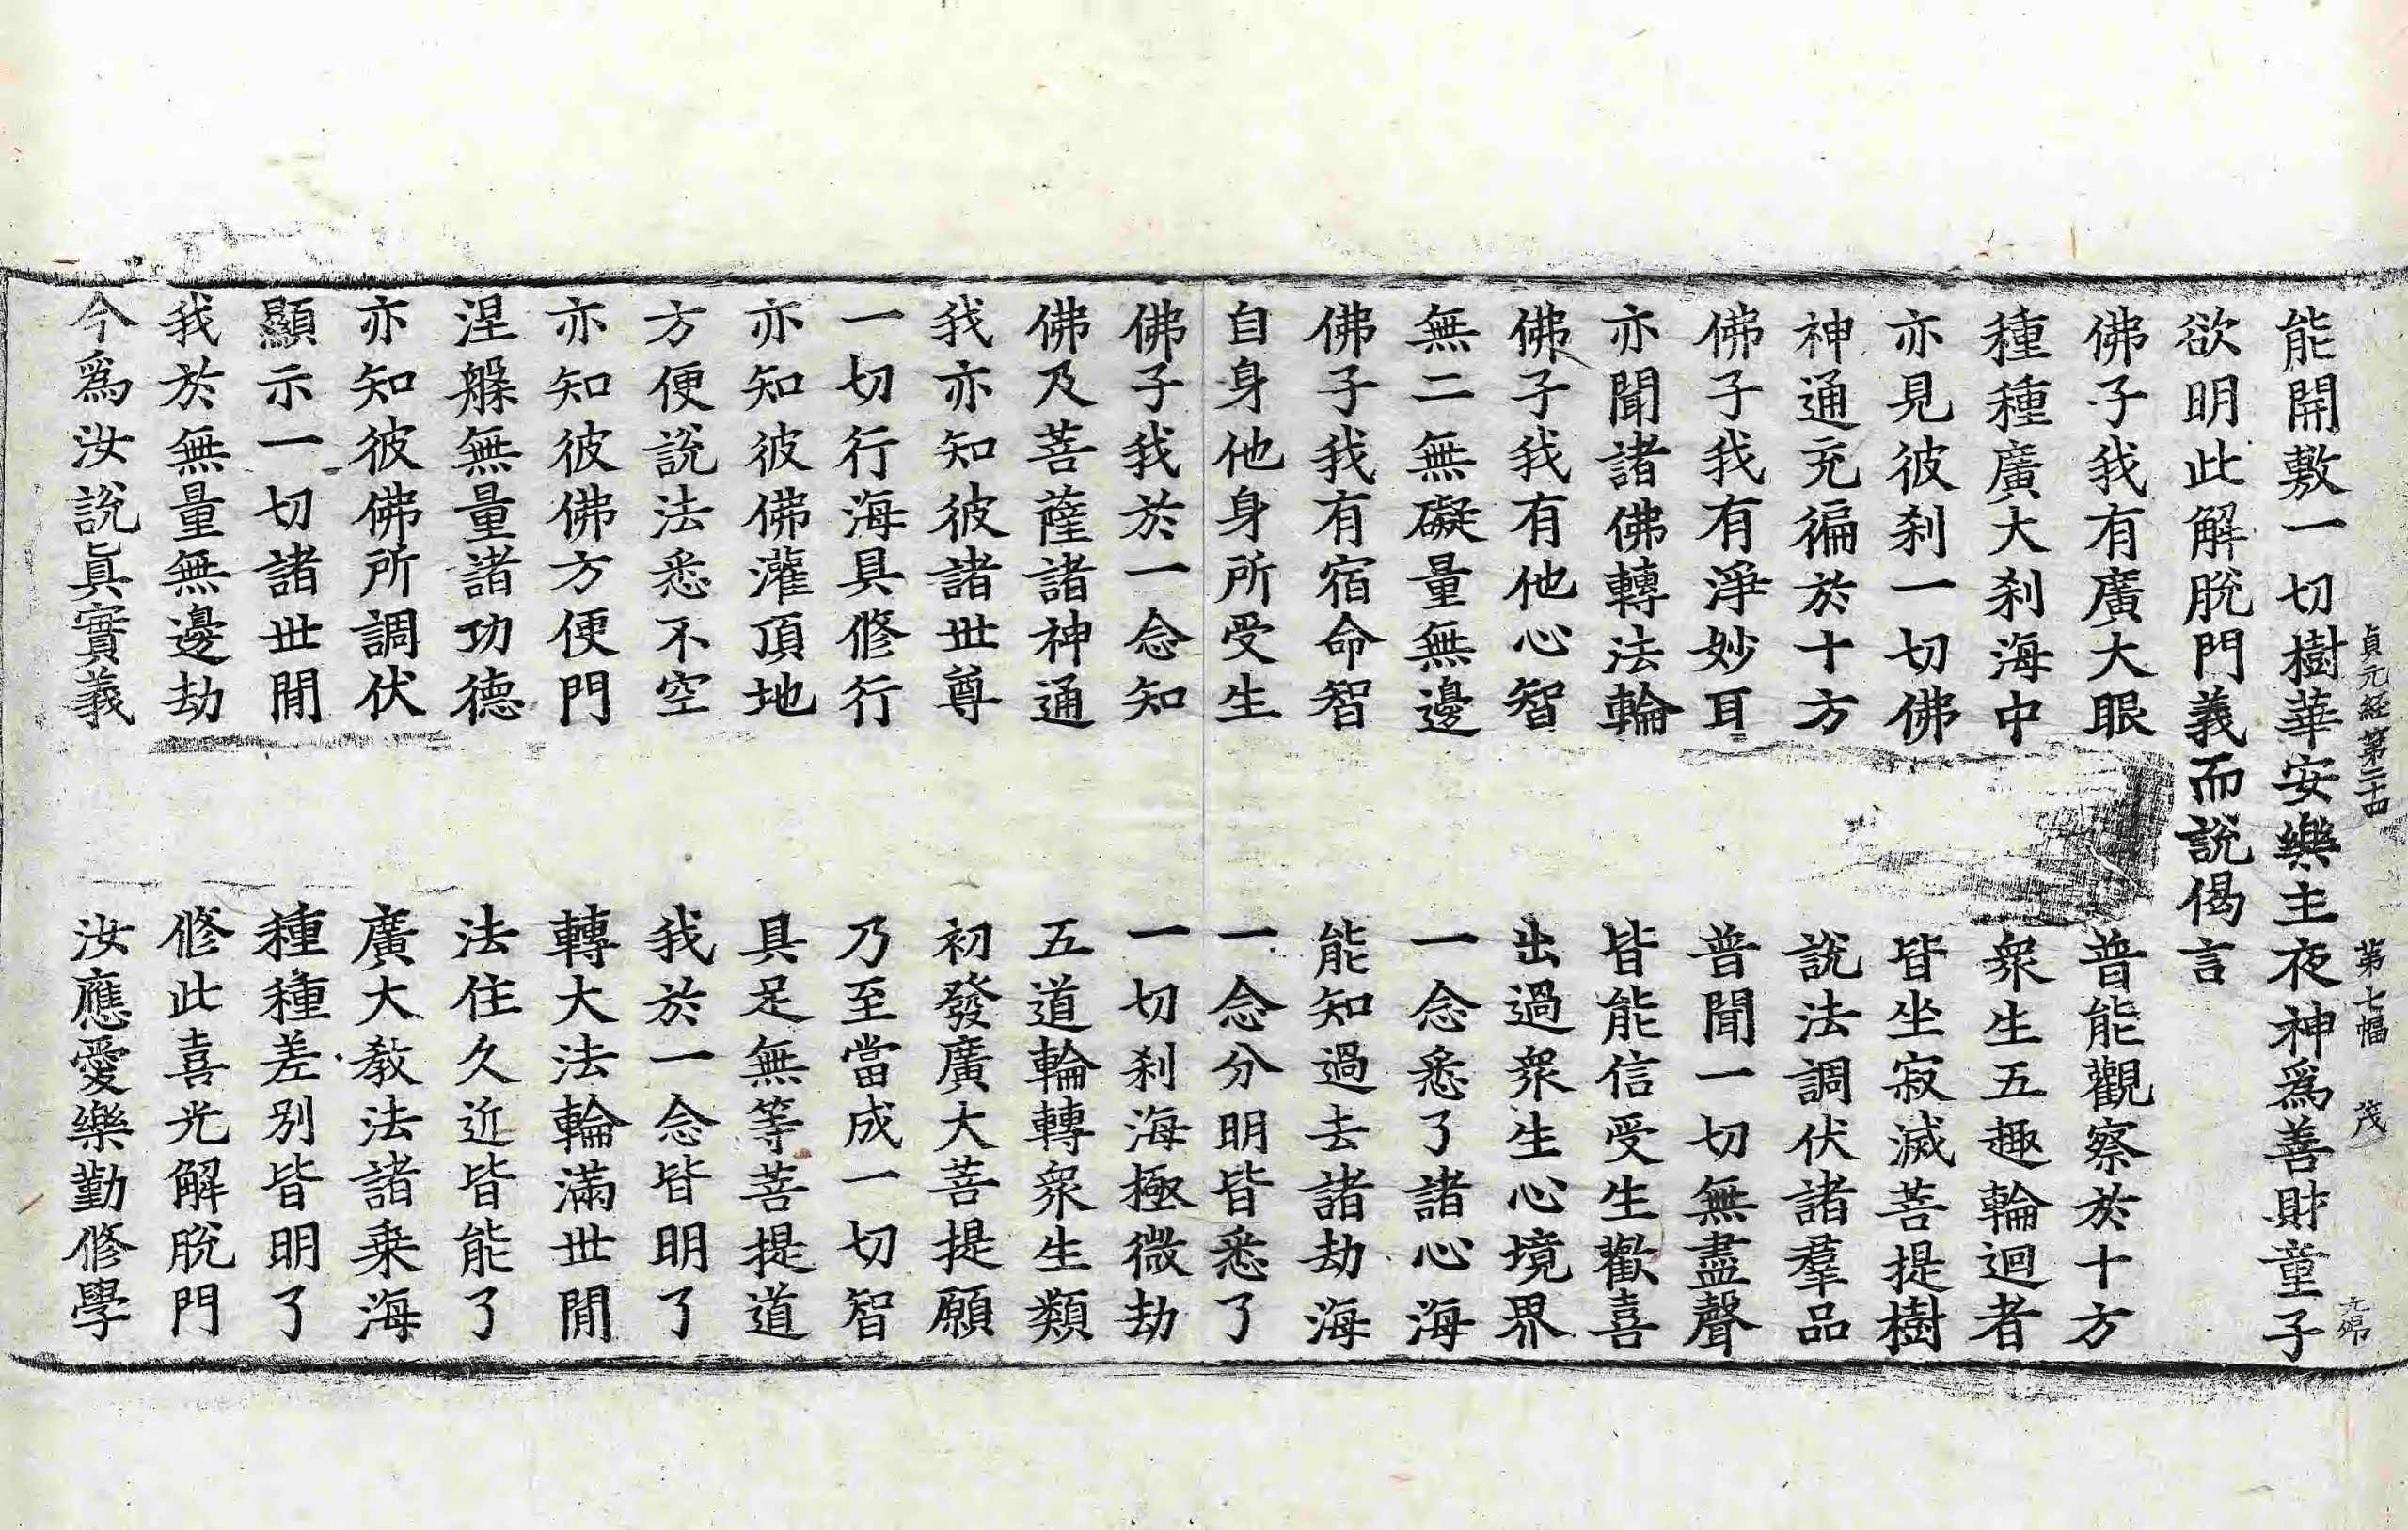 貞元経第二十四 第七幅 茂
能開敷一切樹華安樂主夜神爲善財童子
欲明此解脫門義而說偈言
佛子我有廣大眼 普能觀察於十方
種種廣大刹海中 衆生五趣輪迴者
亦見彼刹一切佛 皆坐寂滅菩提樹
神通充徧於十方 說法調伏諸羣品
佛子我有淨妙耳 普聞一切無盡聲
亦聞諸佛轉法輪 皆能信受生歡喜
佛子我有他心智 出過衆生心境界
無二無礙量無邊 一念悉了諸心海
佛子我有宿命智 能知過去諸劫海
自身他身所受生 一念分明皆悉了
佛子我於一念知 一切刹海極微劫
佛及菩薩諸神通 五道輪轉衆生類
我亦知彼諸世尊 初發廣大菩提願
一切行海具修行 乃至當成一切智
亦知彼佛灌頂地 具足無等菩提道
方便說法悉不空 我於一念皆明了
亦知彼佛方便門 轉大法輪滿世閒
涅槃無量諸功德 法住久近皆能了
亦知彼佛所調伏 廣大教法諸乗海
顯示一切諸世閒 種種差別皆明了
我於無量無邊劫 修此喜光解脫門
今爲汝說眞實義 汝應愛樂勤修學